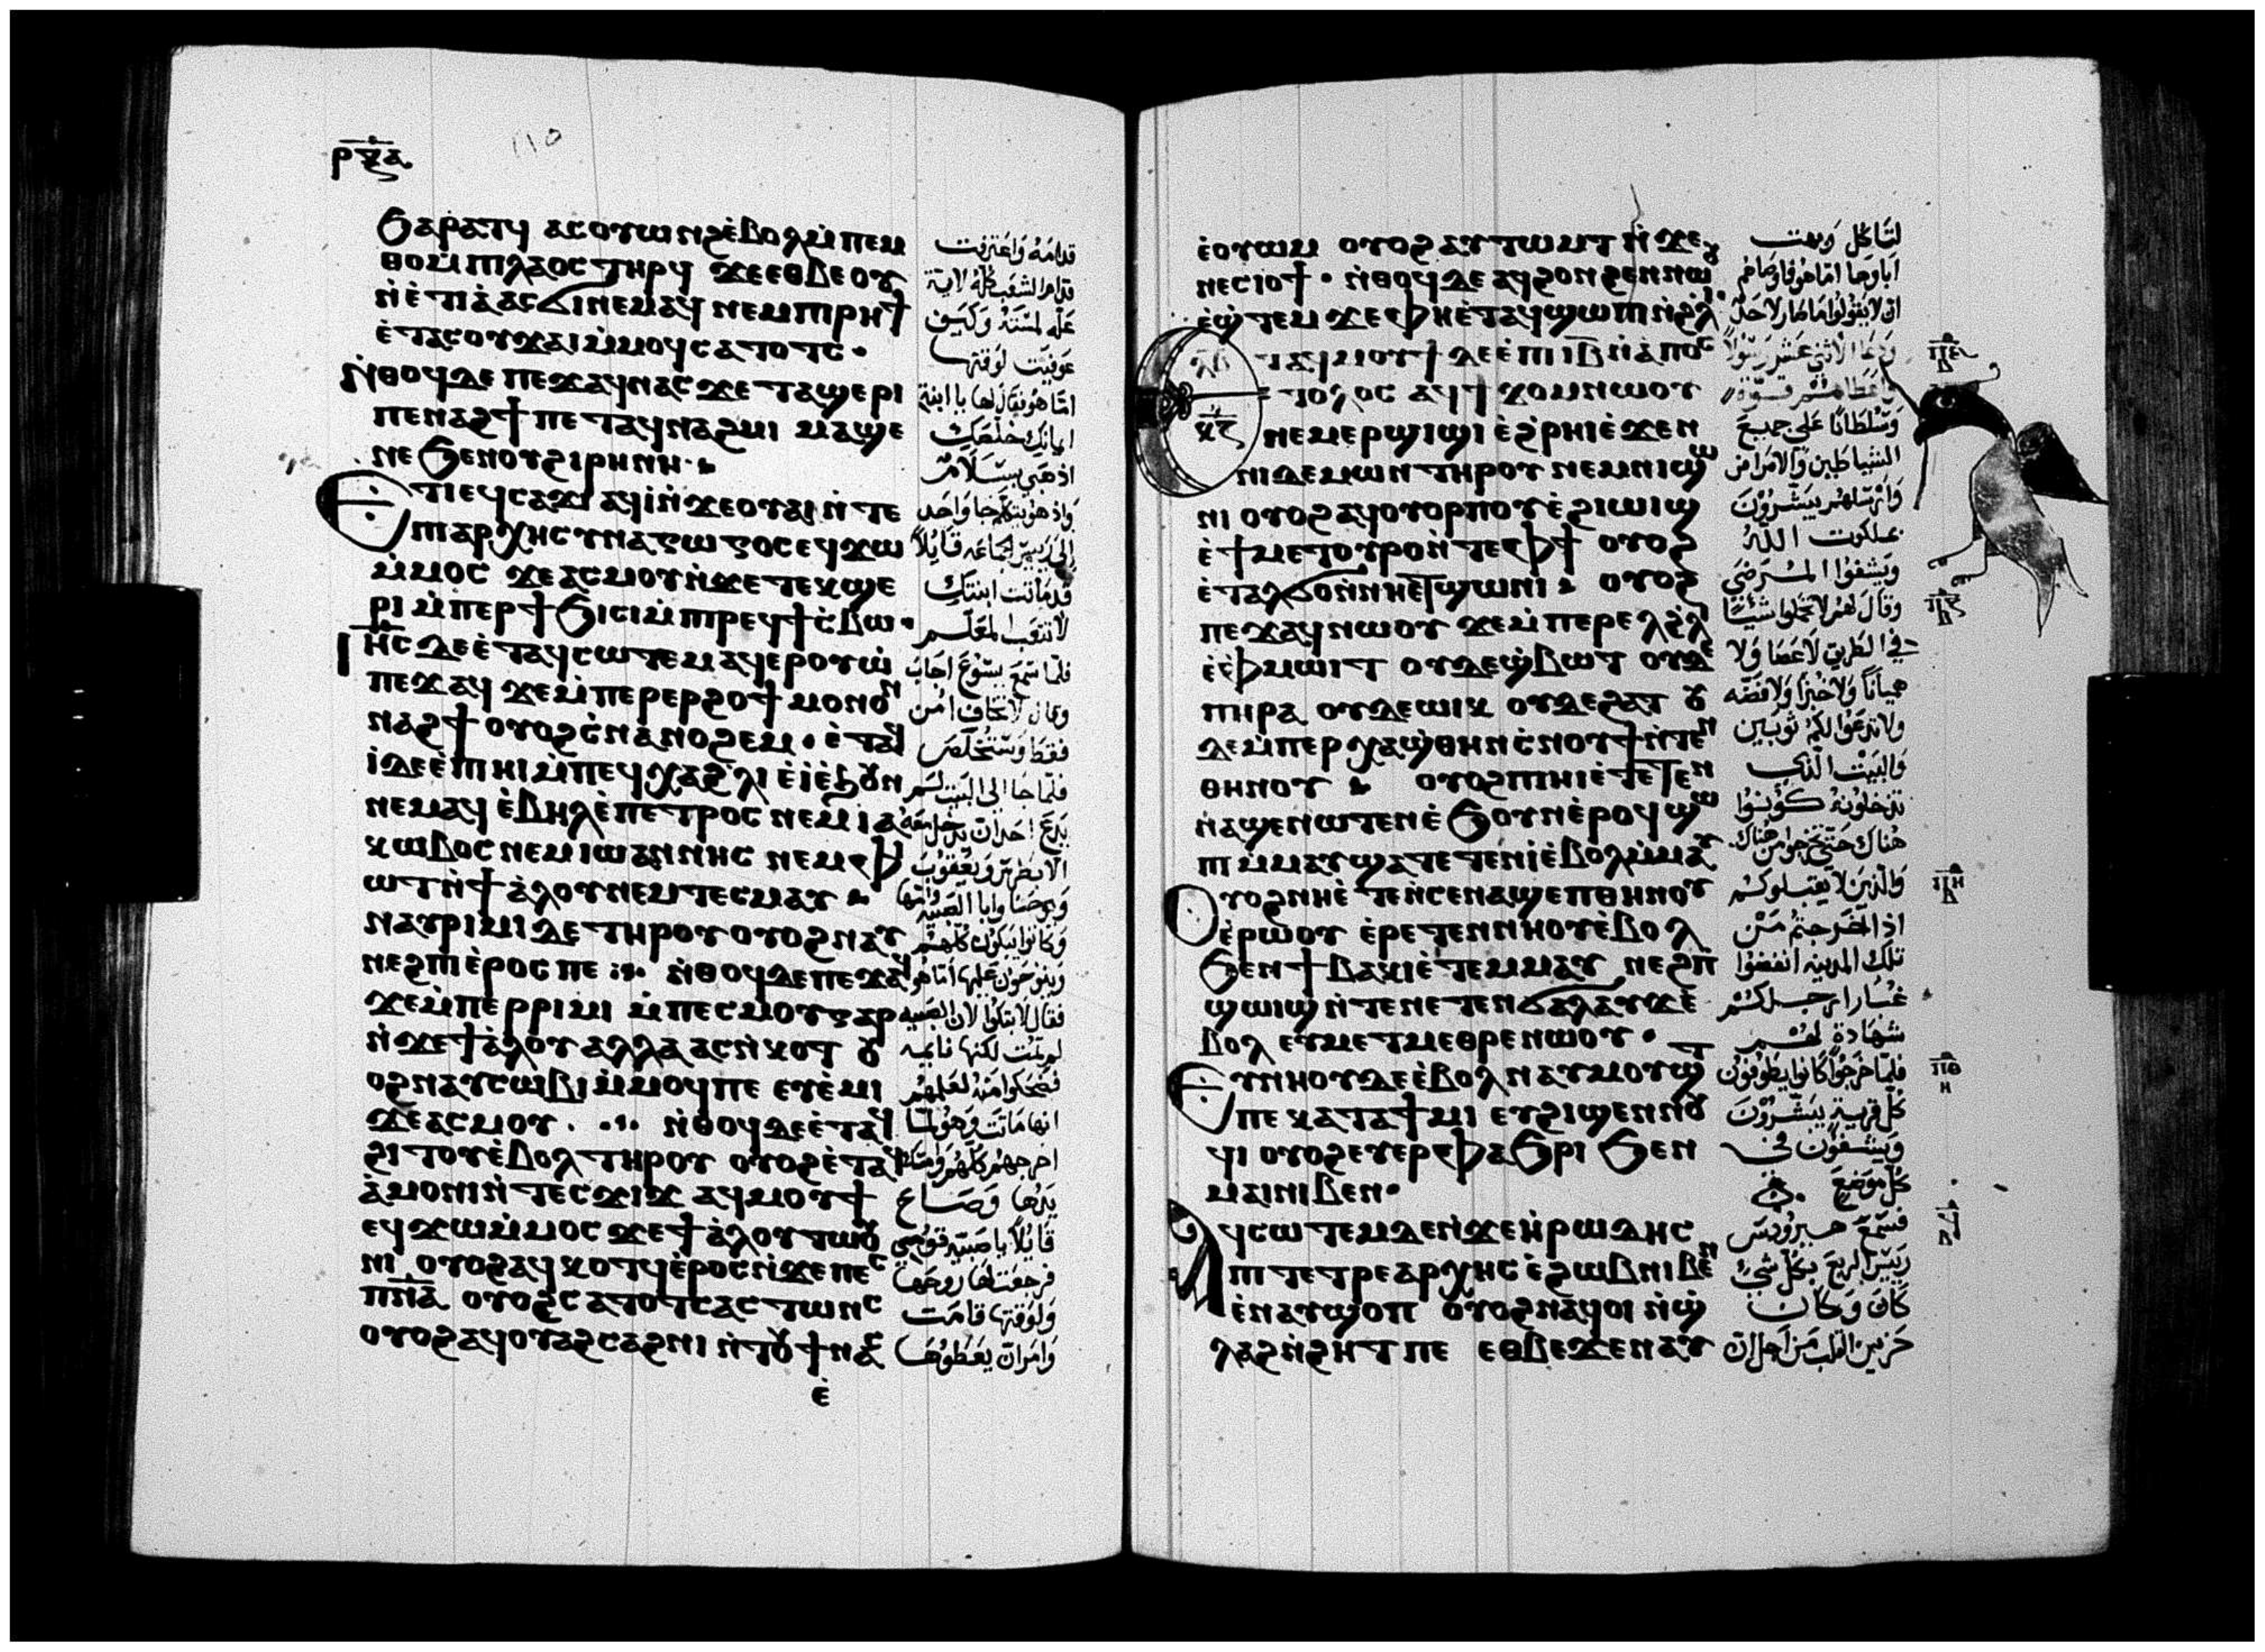 ⲣⲝⲇ
110
ϧⲁⲣⲁⲧϥ ⲁⲥⲟⲩⲱⲛϩⲉ̀ⲃⲟⲗⲙ̀ⲡⲉⲙ
ⲑⲟⲙ̀ⲡⲓⲗⲁⲟⲥ ⲧⲏⲣϥ ϫⲉⲉⲑⲃⲉⲟⲩ
ⲛ̀ⲉ̀ⲧⲓⲁ̀ ⲁⲥϭⲓⲛⲉⲙⲁϥ ⲛⲉⲙⲡⲓⲣⲏϯ
ⲉ̀ⲧⲁⲥⲟⲩϫⲁⲓ ⲙ̀ⲙⲟϥ ⲥⲁⲧⲟⲧⲥ·
ⲛ̀ⲑⲟϥⲇⲉ ⲡⲉϫⲁϥⲛⲁⲥ ϫⲉ ⲧⲁϣⲉⲣⲓ
ⲡⲉⲛⲁϩϯ ⲡⲉⲧⲁϥⲛⲁϩⲙⲓ ⲙⲁϣⲉ
ⲛⲉ ϧⲉⲛⲟⲩϩⲓⲣⲏⲛⲏ·
ⲉⲧⲓⲉϥⲥⲁϫⲓ ⲁϥⲓ̀ⲛ̀ϫⲉⲟⲩⲁⲓ ⲛ̀ⲧⲉ
ⲡⲓⲁⲣⲭⲏⲥⲩⲛⲁⲅⲱⲅⲟⲥ ⲉϥϫⲱ
ⲙ̀ⲙⲟⲥ ϫⲉⲁⲥⲙⲟⲩⲛ̀ϫⲉ ⲧⲉⲕϣⲉ
ⲣⲓ ⲙ̀ⲡⲉⲣϯϧⲓⲥⲓ ⲙ̀ⲡⲓⲣⲉϥϯⲥ̀ⲃⲱ·
ⲓⲏⲥ ⲇⲉⲉ̀ⲧⲁϥⲥⲱⲧⲉⲙ ⲁϥⲉⲣⲟⲩⲱ̀
ⲡⲉϫⲁϥ ϫⲉⲙ̀ⲡⲉⲣⲉⲣϩⲟϯ ⲙⲟⲛⲟⲛ
ⲛⲁϩϯ ⲟⲩⲟϩⲥ̀ⲛⲁⲛⲟϩⲉⲙ· ⲉ̀ⲧⲁϥ
ⲓ̀ⲇⲉⲉ̀ⲡⲓⲏⲓ ⲙ̀ⲡⲉϥⲭⲁϩⲗⲓ ⲉ̀ⲓ̀ⲉ̀ϧⲟⲩⲛ
ⲛⲉⲙⲁϥ ⲉ̀ⲃⲏⲗⲉ̀ⲡⲉⲧⲣⲟⲥ ⲛⲉⲙⲓⲁ
ⲕⲱⲃⲟⲥ ⲛⲉⲙⲓⲱⲁⲛⲛⲏⲥ ⲛⲉⲙⲫ
ⲓⲱⲧⲛ̀ϯⲁ̀ⲗⲟⲩ ⲛⲉⲙⲧⲉⲥⲙⲁⲩ
ⲛⲁⲩⲣⲓⲙⲓ ⲇⲉ ⲧⲏⲣⲟⲩ ⲟⲩⲟϩ ⲛⲁⲩ
ⲛⲉϩⲡⲓⲉ̀ⲣⲟⲥ ⲡⲉ ⲛ̀ⲑⲟϥⲇⲉ ⲡⲉϫⲁϥ
ϫⲉⲙ̀ⲡⲉⲣⲣⲓⲙⲓ ⲙ̀ⲡⲉⲥⲙⲟⲩ ⲅⲁⲣ
ⲛ̀ϫⲉϯⲁ̀ⲗⲟⲩ ⲁⲗⲗⲁ ⲁⲥⲛ̀ⲕⲟⲧ ⲟⲩ
ⲟϩ ⲛⲁⲩⲥⲱⲃⲓ ⲙ̀ⲙⲟϥ ⲡⲉ ⲉⲩⲉ̀ⲙⲓ
ϫⲉⲁⲥⲙⲟⲩ. ⲛ̀ⲑⲟϥⲇⲉ ⲉ̀ⲧⲁϥ
ϩⲓⲧⲟⲩⲉ̀ⲃⲟⲗ ⲧⲏⲣⲟⲩ ⲟⲩⲟϩ ⲉ̀ⲧⲁϥ
ⲁ̀ⲙⲟⲛⲓ ⲛ̀ⲧⲉⲥϫⲓϫ ⲁϥⲙⲟⲩϯ
ⲉϥϫⲱⲙ̀ⲙⲟⲥ ϫⲉϯⲁ̀ⲗⲟⲩ ⲧⲱⲟⲩ
ⲛⲓ ⲟⲩⲟϩ ⲁϥⲕⲟⲧϥ ⲉ̀ⲣⲟⲥ ⲛ̀ϫⲉⲡⲉⲥ
ⲡⲛⲁ ⲟⲩⲟϩ ⲥⲁⲧⲟⲧⲥ ⲁⲥⲧⲱⲛⲥ
ⲟⲩⲟϩ ⲁϥⲟⲩⲁϩⲥⲁϩⲛⲓ ⲛ̀ⲧⲟⲩϯⲛⲁⲥ
ⲉ̀
قدامه واعترفت
قدام الشعب كله لاية
علة لمسته وكيف
عوفيت لوقتها
اما هو فقال لها يا ابنة
ايمانك خلصك
اذهبي بسلام
واذ هو يتكلم جا واحد
الى ريس الجماعة قايلا
قد ماتت ابنتك
لا تتعب المعلم
فلما سمع يسوع اجاب
وقال لا تخاف امن
فقط وستخلص
فلما جا الى البيت لم
يدع احدا ان يدخل معه
الا بطرس ويعقوب
ويوحنا وابا الصبية وامها
وكانوا يبكون كلهم
وينوحون عليها اما هو
فقال لا تبكوا لان الصبية
لم تمت لكنها نايمة
فضحكوا منه لعلمهم
انها ماتت وهو لما
اخرجهم كلهم وامسك
يدها وصاح
قايلا يا صبية قومي
فرجعت لها روحها
ولوقتها قامت
وامر ان يعطوها
ⲉ̀ⲟⲩⲱⲙ ⲟⲩⲟϩ ⲁⲩⲧⲱⲙⲧ ⲛ̀ϫⲉ
ⲛⲉⲥⲓⲟϯ· ⲛ̀ⲑⲟϥⲇⲉ ⲁϥϩⲟⲛϩⲉⲛ ⲛⲱⲟⲩ
ⲉ̀ϣⲧⲉⲙϫⲉ ⲫⲏⲉ̀ⲧⲁϥϣⲱⲡⲓ ⲛ̀ϩⲗⲓ·
ⲉⲧⲁϥⲙⲟⲩϯ ⲇⲉ ⲉ̀ⲡⲓⲓⲃ ⲛ̀ⲁ̀ⲡⲟⲥ
ⲧⲟⲗⲟⲥ ⲁϥϯ ϫⲟⲙ ⲛⲱⲟⲩ
ⲛⲉⲙⲉⲣϣⲓϣⲓ ⲉ̀ϩ̀ⲣⲏⲓ ⲉ̀ϫⲉⲛ
ⲛⲓⲇⲉⲙⲱⲛ ⲧⲏⲣⲟⲩ ⲛⲉⲙⲛⲓϣⲱ
ⲛⲓ ⲟⲩⲟϩ ⲁϥⲟⲩⲟⲣⲡⲟⲩ ⲉ̀ϩⲓⲱⲓϣ
ⲉ̀ϯⲙⲉⲧⲟⲩⲣⲟ ⲛ̀ⲧⲉⲫϯ ⲟⲩⲟϩ
ⲉ̀ⲧⲁⲗϭⲟ ⲛ̀ⲛⲏⲉⲧϣⲱⲛⲓ ⲟⲩⲟϩ
ⲡⲉϫⲁϥ ⲛⲱⲟⲩ ϫⲉⲙ̀ⲡⲉⲣⲉⲗϩ̀ⲗⲓ
ⲉ̀ⲫⲙⲱⲓⲧ ⲟⲩⲇⲉϣⲃⲱⲧ ⲟⲩⲇⲉ
ⲡⲏⲣⲁ ⲟⲩⲇⲉⲱⲓⲕ ⲟⲩⲇⲉϩⲁⲧ ⲟⲩ
ⲇⲉⲙ̀ⲡⲉⲣⲭⲁϣ̀ⲑⲏⲛ ⲥ̀ⲛⲟⲩϯ ⲛ̀ⲧⲉⲛ
ⲑⲏⲛⲟⲩ ⲟⲩⲟϩ ⲡⲓⲏⲓ ⲉ̀ⲧⲉⲧⲉⲛ
ⲛⲁϣⲉⲛⲱⲧⲉⲛ ⲉ̀ϧⲟⲩⲛ ⲉ̀ⲣⲟϥ ϣⲱ
ⲡⲓ ⲙ̀ⲙⲁⲩ ϣⲁⲧⲉⲧⲉⲛⲓ̀ ⲉ̀ⲃⲟⲗ ⲙ̀ⲙⲁⲩ
ⲟⲩⲟϩ ⲛⲏⲉ̀ⲧⲉⲛ̀ⲥⲉⲛⲁϣⲉⲡⲑⲏⲛⲟⲩ
ⲉ̀ⲣⲱⲟⲩ ⲉ̀ⲣⲉⲧⲉⲛⲛⲏⲟⲩ ⲉ̀ⲃⲟⲗ
ϧⲉⲛϯⲃⲁⲕⲓ ⲉ̀ⲧⲉⲙⲙⲁⲩ ⲛⲉϩⲡ
ϣⲱⲓϣ ⲛ̀ⲧⲉⲛⲉⲧⲉⲛϭⲁⲗⲁⲩϫ ⲉ̀
ⲃⲟⲗ ⲉⲩⲙⲉⲧⲙⲉⲑⲣⲉ ⲛⲱⲟⲩ·
ⲉⲩⲛⲏⲟⲩ ⲇⲉ ⲉ̀ⲃⲟⲗ ⲛⲁⲩⲙⲟϣⲧ
ⲡⲉ ⲕⲁⲧⲁϯⲙⲓ ⲉⲩϩⲓϣⲉⲛⲛⲟⲩ
ϥⲓ ⲟⲩⲟϩ ⲉⲩⲉⲣⲫⲁϧⲣⲓ ϧⲉⲛ
ⲙⲁⲓⲛⲓⲃⲉⲛ·
ⲁϥⲥⲱⲧⲉⲙ ⲇⲉ ⲛ̀ϫⲉⲏ̀ⲣⲱⲇⲏⲥ
ⲡⲓⲧⲉⲧⲣⲉⲁⲣⲭⲏⲥ ⲉ̀ϩⲱⲃ ⲛⲓⲃⲉⲛ
ⲉ̀ⲛⲁⲩϣⲟⲡ ⲟⲩⲟϩ ⲛⲁϥⲟⲓ ⲛ̀ϣ̀
ⲗⲁϩ ⲛ̀ϩⲏⲧ ⲡⲉ ⲉⲑⲃⲉϫⲉ ⲛⲁⲩ
لتاكل وبهت
ابواها اما هو فاوصاهم
ودعا الاثني عشر رسولا
واعطاهم قوة
وسلطانا على جميع
الشياطين والامراض
وارسلهم يبشرون
بملكوت الله
ويشفوا المرضى
وقال لهم لا تحملوا شيئا
في الطريق لا عصا ولا
هميانا ولا خبزا ولا فضة
والبيت الذي
تدخلونه كونوا
هناك حتى تخرجوا من هناك
والذين لا يقبلوكم
اذا خرجتم من
تلك المدينة انفضوا
غبار ارجلكم
شهادة لهم
فلما خرجوا كانوا يطوفون
كل قرية يبشرون
ويشفون في
كل موضع
فسمع هيرودس
ريس الربع بكل شي
كان وكان
حزين القلب من اجل ان
ⲡⲉ
ⲡⲏ
ⲡⲑ
ⲏ